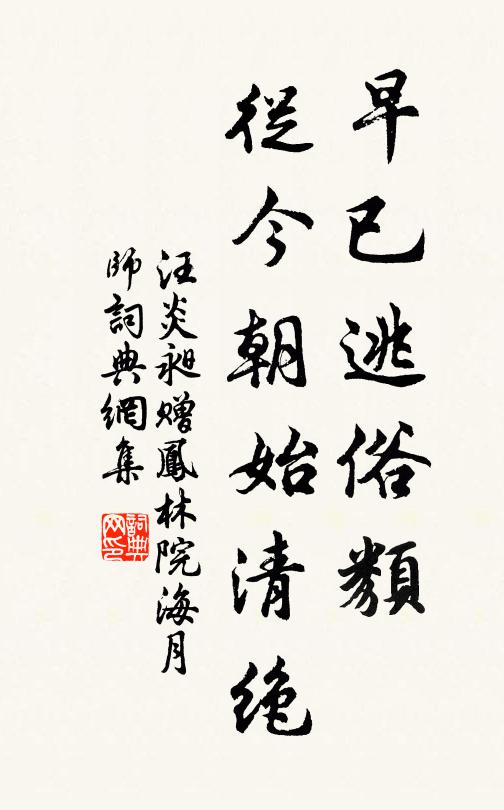 早已逃俗類
從今朝始清絶
汪炎昶贈鳳林院海月
師詞典網集
詞典网印